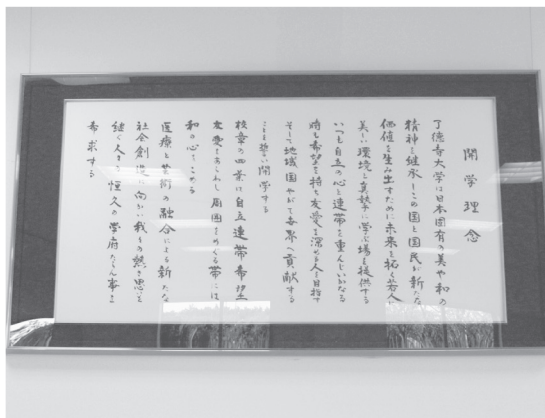 開学理念
了徳寺大学は日本固有の美や和の
精神を継承しこの国と国民が新たな
価値を生み出すために未来を拓く若人に
美しい環境と真摯に学ぶ場を提供する
いつも自立の心と連帯を重んじいかなる
時も希望を持ち友愛を深める人を目指す
そして地域国やがて世界へ貢献する
ことを誓い開学する
校章の四葉は自立連帯希望
友愛をあらわし周囲をめぐる帯には
和の心をこめる
医療と芸術の融合による新たな
社会創造に向かい我らの熱き思いを
継ぐ人きて恒久の学府たらん事を
希求する